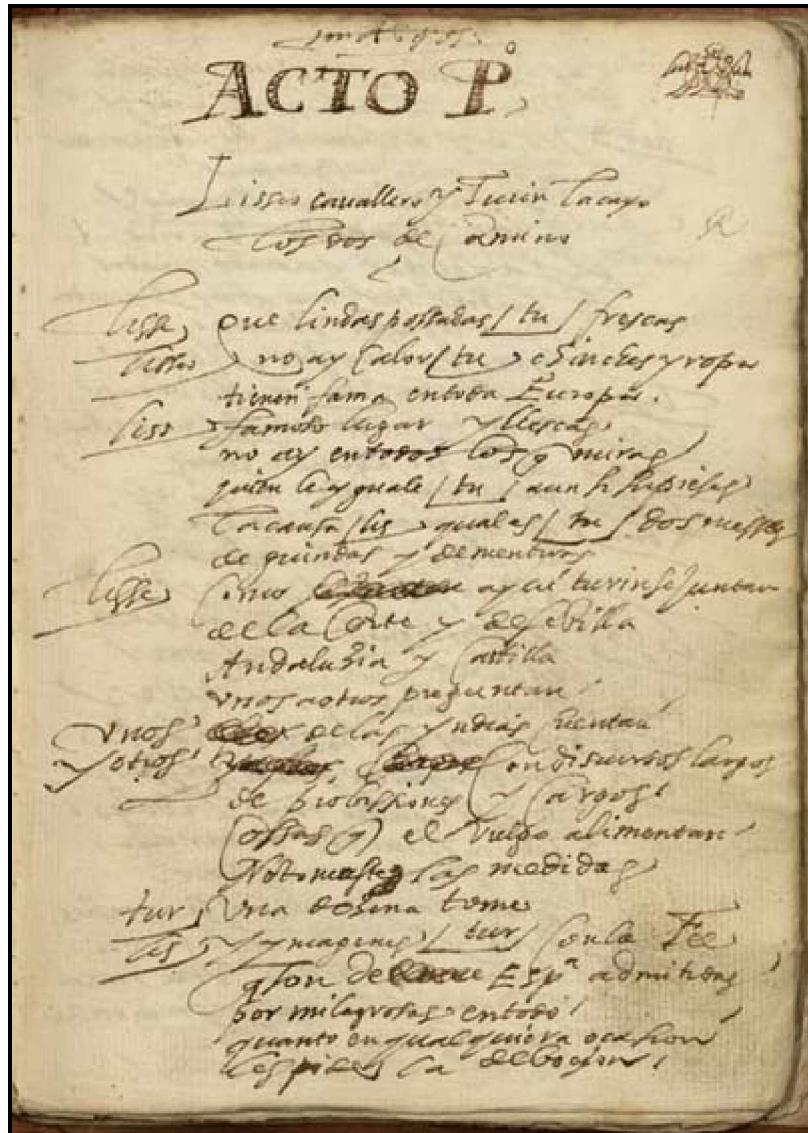 ACTO Pº
Liseo cavallero y Turin lacayo
los dos de camino
lisse, que lindas possadas / tu / frescas
lisseo no ay calor / tu chinches y ropa
tienen fama en toda Europa.
liss famoso lugar yllescas
no ay en todos los q miras
quien le yguale / tu / aun si supieses
la causa / lis qual es / tu / dos messes
de guindas y de mentiras
lisse como aqui turin se juntan
de la Corte y de Sevilla
Andaluzia y Castilla
unos a otros preguntan
unos de las yndias cuentan
y otros con discursos largos
de probissiones y cargos
cossas q el vulgo alimentan
No tomaste las medidas
tur, una dozena tome
lis y ymagenes / tur / con la Fee
q son de Espª admitidas
por milagrosas en todo
quanto en qualquiera ocasion
les pide la devocion